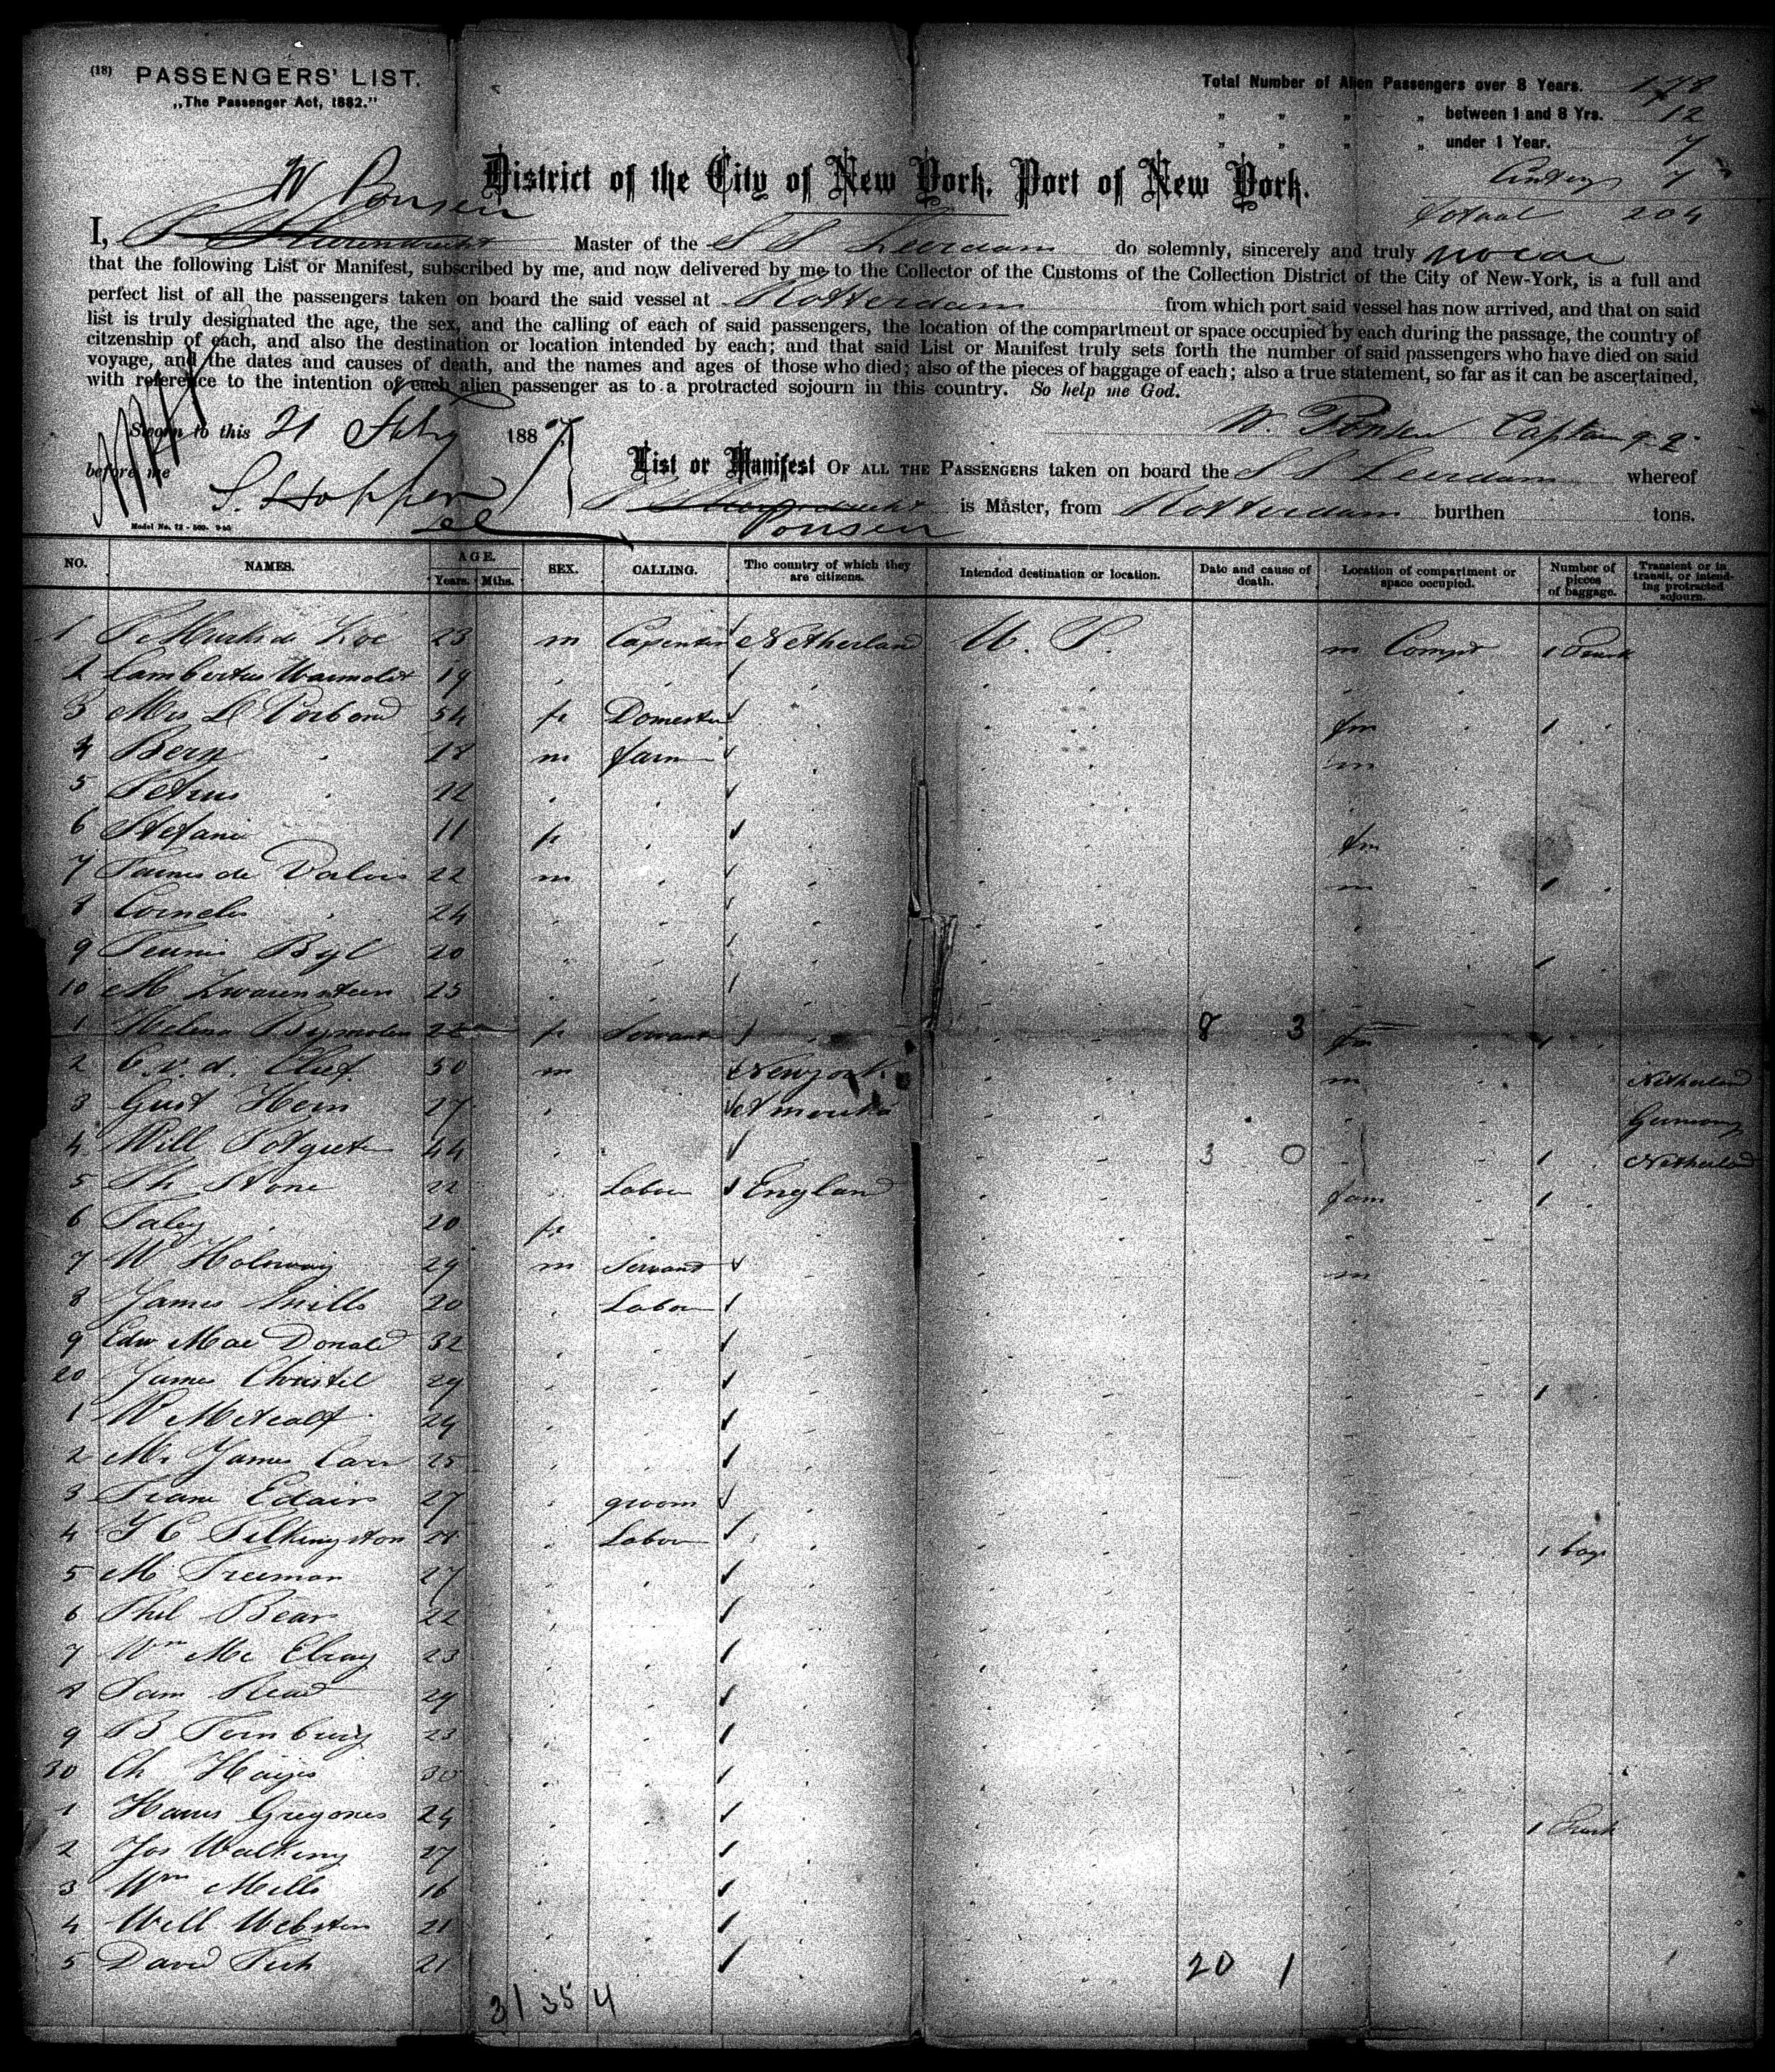 (18) PASSENGERS' LIST.
„The Passenger Act, 1882."
Total Number of Alien Passengers over 8 Years. 178
„ „ „ „ between 1 and 8 Yrs. 12
„ „ „ „ under 1 Year. 7
7
Totaal 204
District of the City of New York, Port of New York.
W Ponsen
I, Master of the S S Leerdam do solemnly, sincerely and truly
that the following List or Manifest, subscribed by me, and now delivered by me to the Collector of the Customs of the Collection District of the City of New-York, is a full and
perfect list of all the passengers taken on board the said vessel at Rotterdam from which port said vessel has now arrived, and that on said
list is truly designated the age, the sex, and the calling of each of said passengers, the location of the compartment or space occupied by each during the passage, the country of
citzenship of each, and also the destination or location intended by each; and that said List or Manifest truly sets forth the number of said passengers who have died on said
voyage, and the dates and causes of death, and the names and ages of those who died; also of the pieces of baggage of each; also a true statement, so far as it can be ascertained,
with reference to the intention of each alien passenger as to a protracted sojourn in this country. So help me God.
Sworn to this 21 188 7
W. Ponsen Captain
before me S. Hopper
List or Manifest OF ALL THE PASSENGERS taken on board the S S Leerdam whereof
is Master, from Rotterdam burthen tons.
Ponsen
Model No. 12 - 500.
NO. NAMES. AGE. Years. Mths. SEX. CALLING. The country of which they are citizens. Intended destination or location. Date and cause of death. Location of compartment or space occupied. Number of pieces of baggage. Transient or in transit, or intending protracted sojourn.
1 Koe 23 m Carpenter Netherland U. S. m Compt 1 Trunk
2 Lambertus 19
3 Mrs 54 fe Domestic fm 1
4 Bern 18 m farm m
5 Petrus 12
6 Stefani 11 fe fm
7 de Valois 22 m m 1
8 Cornelis 24
9 Teunis Byl 20 1
10 M Zwarenstein 25
1 Helena 22 fe Servant 8 3 fm 1
2 C. v. d. Clief 50 m Newyork m Netherland
3 Gust Hern 27 America Germany
4 Will 44 3 0 1 Netherland
5 Th Stone 22 Labour England fam 1
6 20 fe
7 W Holoway 29 m Servant m
8 James 20 Labour
9 Edw Mac Donald 32
20 James Christel 29 1
1 W Metcalf 24
2 Mr James Carr 25
3 27 groom
4 Pilkingston 28 Labour 1 bag
5 M Freeman 27
6 Phil Bears 22
7 Wm Mc Elroy 23
8 Sam Read 29
9 B 23
30 Ch Hayes 30
1 24 1 Trunk
2 Jos 27
3 Wm Mills 16
4 Will Webster 21
5 David 21 20 1
31 35 4